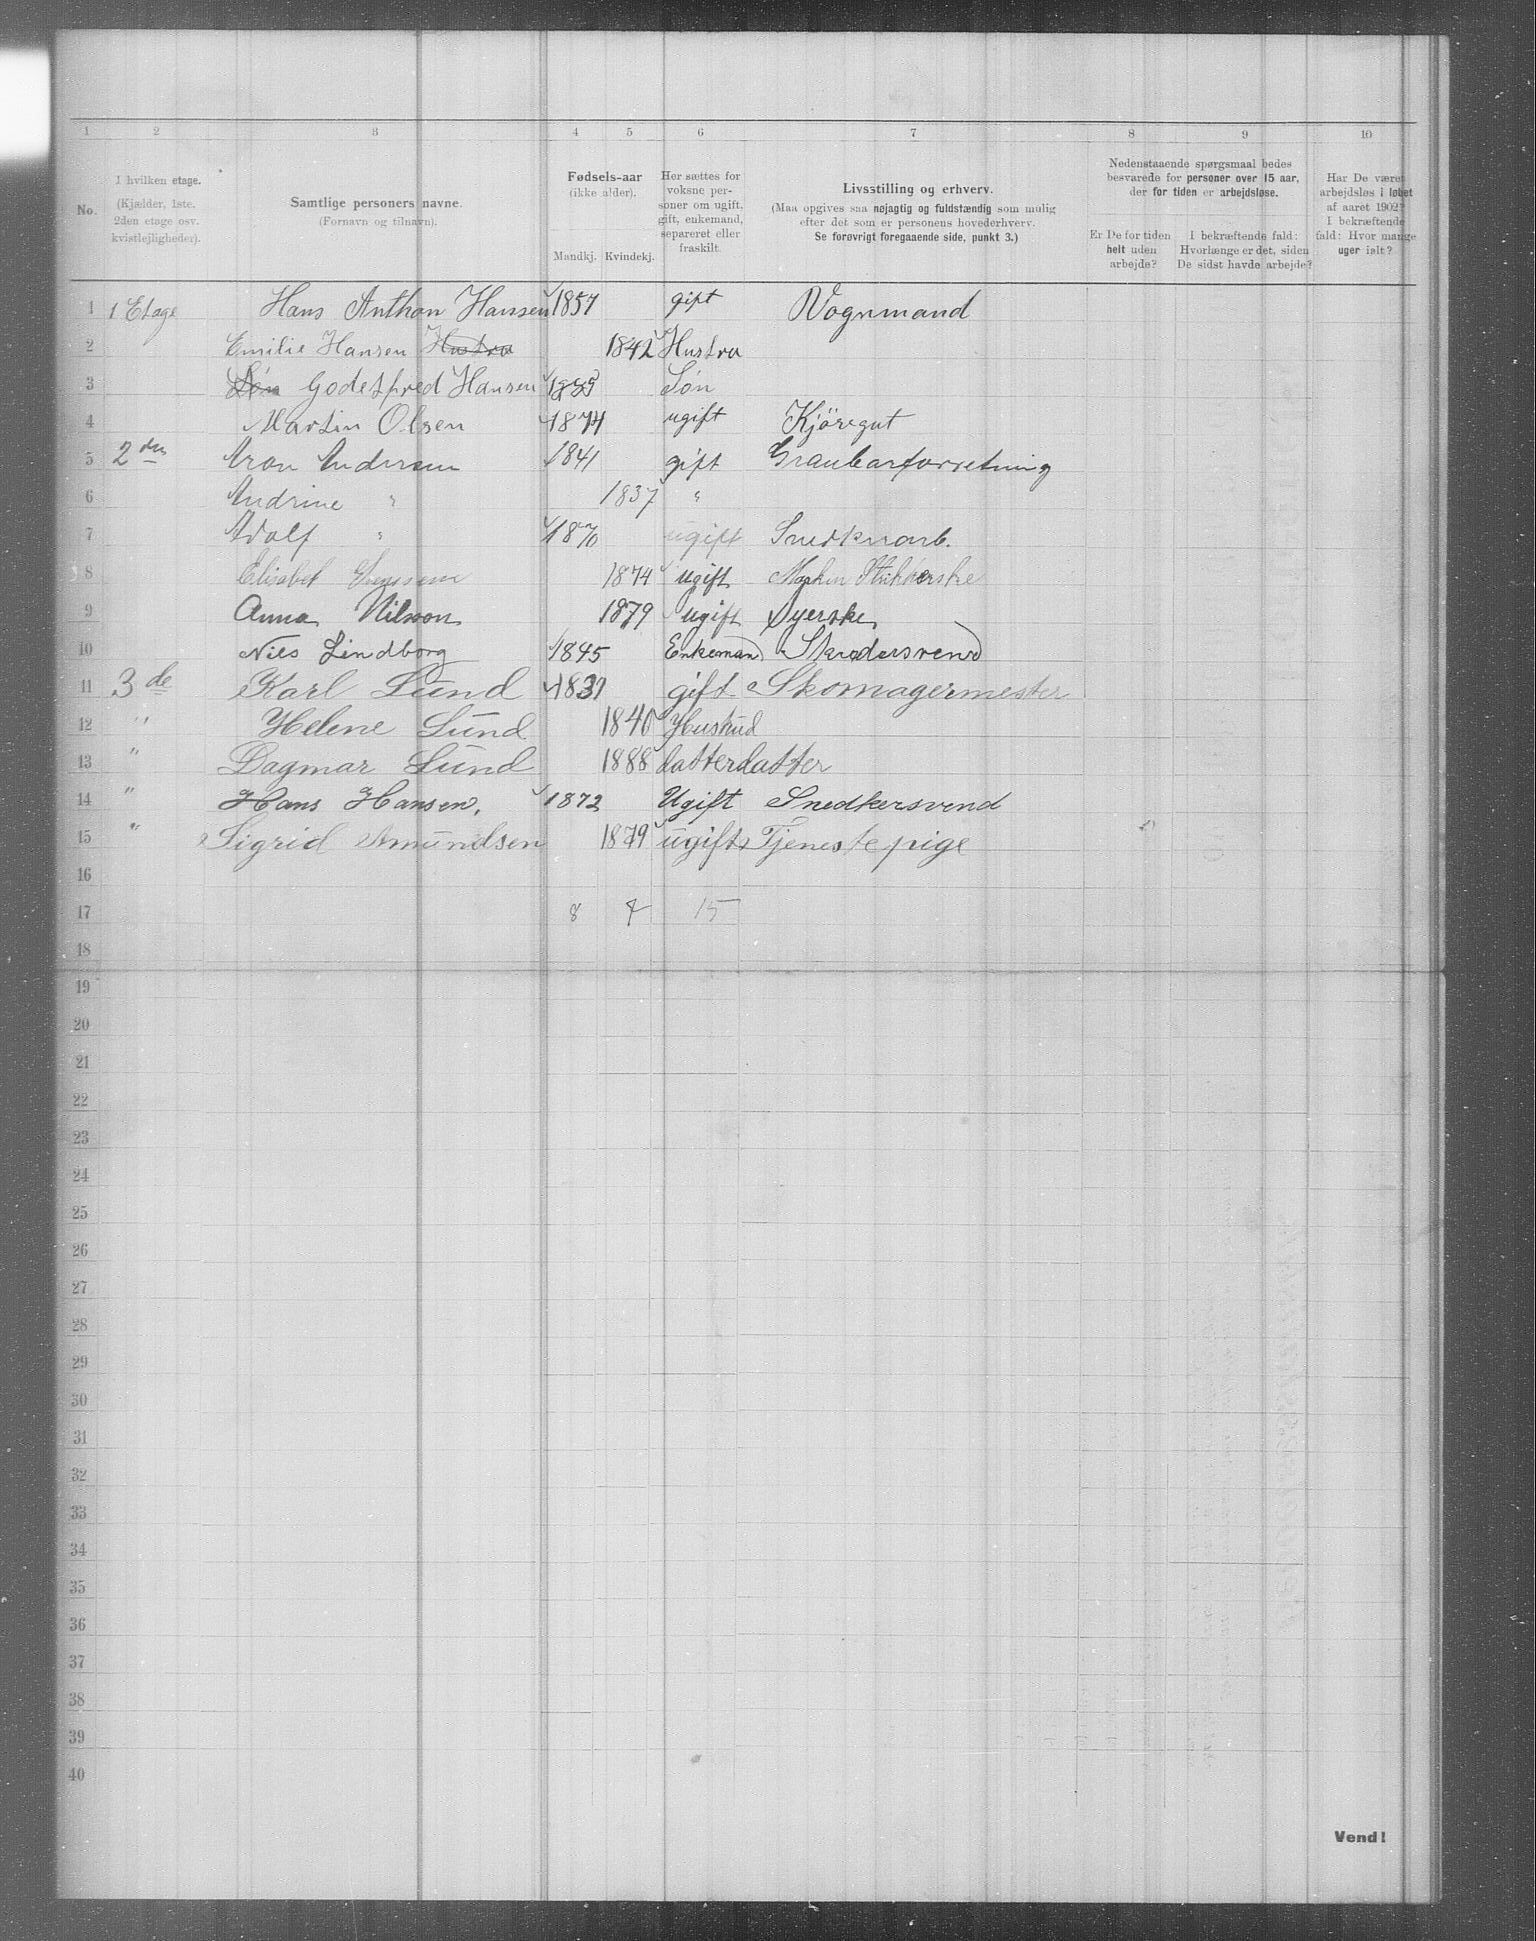 1 2 3 4 5 6 7 8 9 10
No. I hvilken etage. (Kjælder, 1ste. 2den etage osv. kvistlejligheder).
Samtlige personers navne. (Fornavn og tilnavn).
Fødsels-aar (ikke alder). Mandkj. Kvindekj.
Her sættes for voksne personer om ugift, gift, enkemand, separeret eller fraskilt.
Livsstilling og erhverv.
(Maa opgives saa nøjagtig og fuldstændig som mulig efter det som er personens hovederhverv.
Se forøvrigt foregaaende side, punkt 3.)
Nedenstaaende spørgsmaal bedes besvarede for personer over 15 aar, der for tiden er arbejdsløse.
Er De for tiden helt uden arbejde?
I bekræftende fald: Hvorlænge er det, siden De sidst havde arbejde?
Har De været arbejdsløs i løbet af aaret 1902? I bekræftende fald: Hvor mange uger ialt?
1 1 Etage Hans Anthon Hansen 1857 gift Vognmand
2 Emilie Hansen Hustru 1842 Hustru
3 Søn Godetfred Hansen Søn
4 Martin Olsen 1874 ugift Kjöregut
5 2den Aron Andersen 1841 gift
6 Andrine " 1837 "
7 Adolf " 1870 ugift Snedkerarb.
8 Elisabet 1874 ugift Maskin Strikkerske
9 Anna Nilsson 1879 ugift Syerske
10 Nils Lindborg 1845 Enkemand Skrædersvend
11 3de Karl Lund 1831 gift Skomagermester
12 " Helene Lund 1840
13 " Dagmar Lund 1888 datterdatter
14 " Hans Hansen. 1872 Ugift Snedkersvend
15 " Sigrid Amundsen 1879 ugift Tjenestepige
16
17 8 7 15
18
19
20
21
22
23
24
25
26
27
28
29
30
31
32
33
34
35
36
37
38
39
40
Vend!